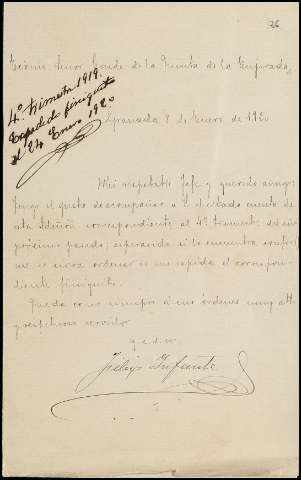 26
Excmo Señor Conde de la Quinta de la Enjarada,
4º. trimestre 1919.
Expedido finiquito
el 24 Enero 1920
Granada 8 de Enero de 1920
Mi respetable Jefe y querido amigo:
Tengo el gusto de acompañar a V. el estado cuenta de
esta Admón correspondiente al 4º trimestre del año
próximo pasado; esperando si la encuentra conforme
se sirva ordenar se me expida el correspondiente
finiquito.
Queda como siempre a sus órdenes suyo att.
y respetuoso servidor
q. e. s. m.
Felix Infante